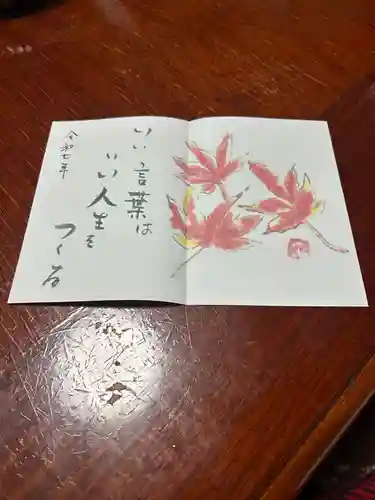 いい言葉は
いい人生を
つくる
令和七年